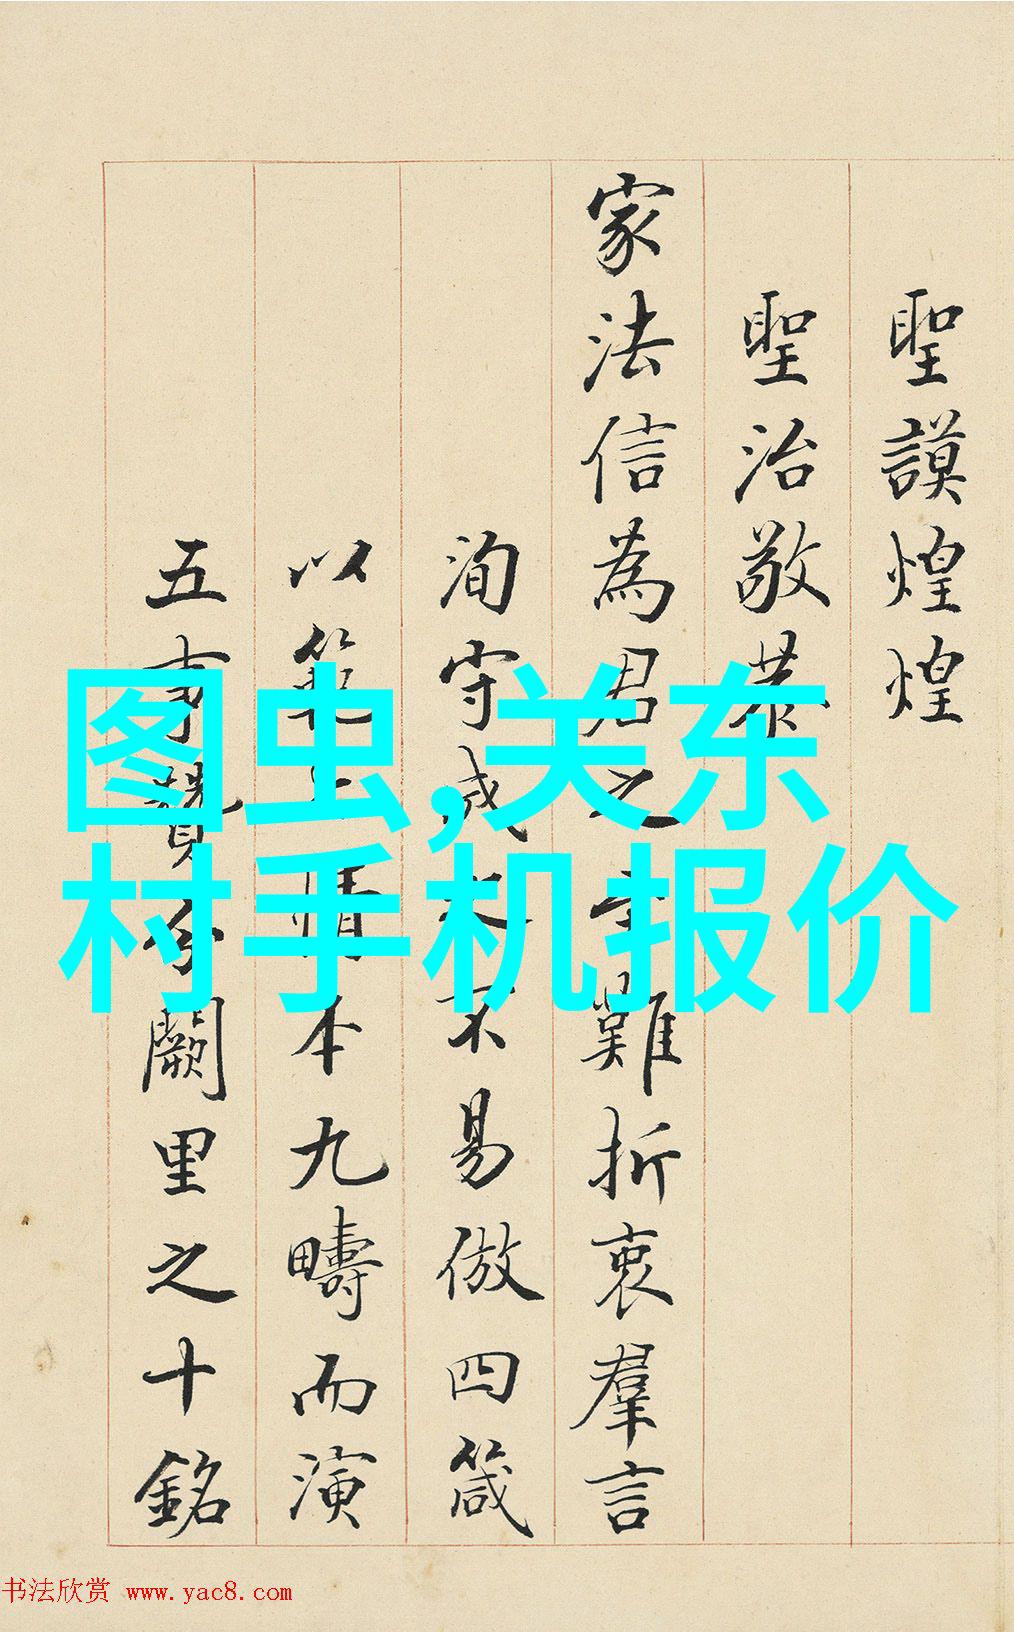 聖謨煌煌
聖治敬恭
家法信為君之難折衷羣言
洵守成不易倣四箴
以範情本九疇而演
五事贊闕里之十銘
图虫,关东
村手机报价
书法欣赏 www.yac8.com